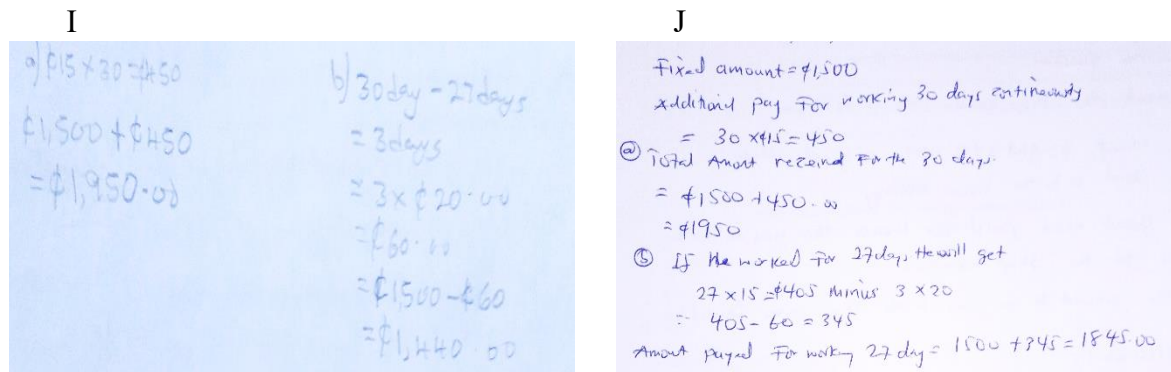 I
a) ₵15 x 30 = ₵450
₵1,500 + ₵450
= ₵1,950.00
b) 30day - 27days
= 3days
= 3 x ₵20.00
= ₵60.00
= ₵1500 - ₵60
= ₵1,440.00
J
Fixed amount = ₵1,500
Additional pay For working 30 days continuously
= 30 x ₵15 = 450
(a) Total Amont received For the 30 days.
= ₵1500 + 450.00
= ₵1950
(b) If He worked For 27 days, He will get
27 x 15 = ₵405 Minus 3 x 20
= 405 - 60 = 345
Amount payed For working 27 day = 1500 + 345 = 1845.00